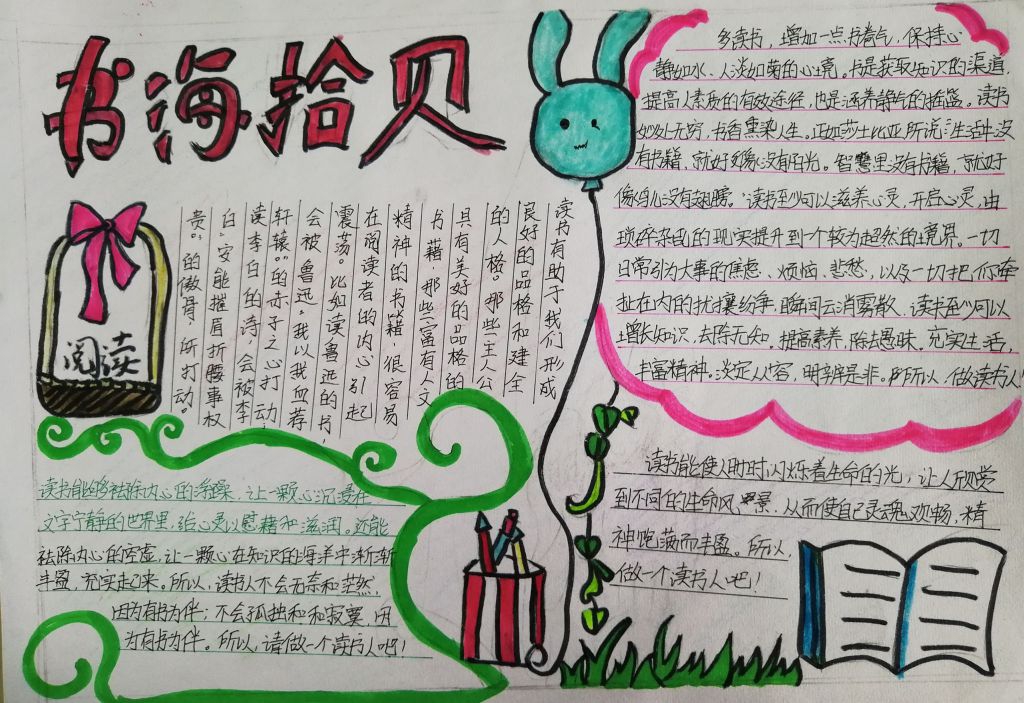 书海拾贝
多读书，增加一点书卷气，保持心
静如水、人淡如菊的心境，书是获取知识的渠道，
提高人素质的有效途径，也是涵养静气的摇篮。读书
妙处无穷，书香熏染人生。正如莎士比亚所说：“生活中没
有书籍，就好像没有阳光。智慧里没有书籍，就好
像鸟儿没有翅膀。”读书至少可以滋养心灵，开启心灵，由
琐碎杂乱的现实提升到一个较为超然的境界。一切
日常引为大事的焦虑、烦恼、悲愁，以及一切把你牵
扯在内的扰攘纷争，瞬间云消雾散，读书至少可以
增长知识，去除无知。提高素养，除去愚昧。充实生活，
丰富精神。淡定从容，明辨是非。所以，做读书人！
读书有助于我们形成
良好的品格和健全
的人格。那些主人公
具有美好的品格的
书籍，那些富有人文
精神的书籍，很容易
在阅读者的内心引起
震荡。比如读鲁迅的书，
会被鲁迅“我以我血荐
轩辕”的赤子之心打动，
读李白的诗，会被李
白“安能摧眉折腰事权
贵”的傲骨，所打动。
阅读
读书能够祛除内心的浮躁，让一颗心沉浸在
文字宁静的世界里，给心灵以慰藉和滋润。还能
祛除内心的空虚，让一颗心在知识的海洋中渐渐
丰盈，充实起来。所以，读书人不会无奈和茫然，
因为有书为伴；不会孤独和和寂寞，因
为有书为伴。所以，请做一个读书人吧！
读书能使人时时闪烁着生命的光，让人欣赏
到不同的生命风景，从而使自己灵魂欢畅，精
神饱满而丰盈。所以，
做一个读书人吧！